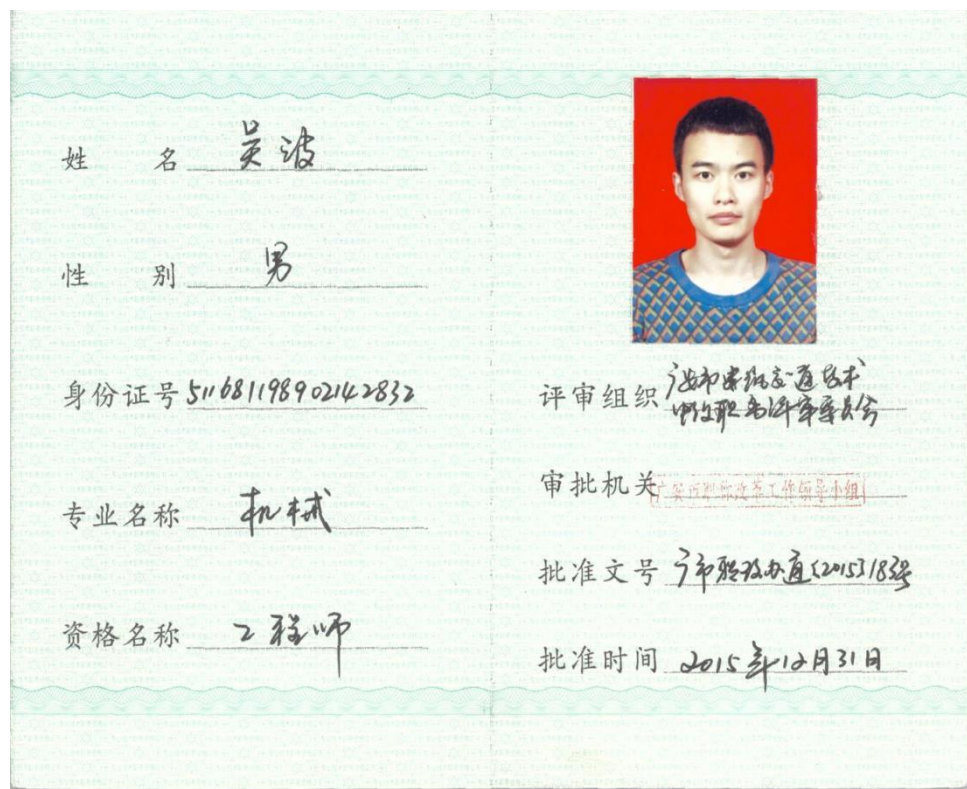 姓 名 吴波
性 别 男
身份证号 511681198902142832
专业名称 机械
资格名称 工程师
评审组织 广安市 交通技术
中级职务评审委员会
审批机关 广安市职称改革工作领导小组
批准文号 广市职改办通〔2015〕183号
批准时间 2015年12月31日